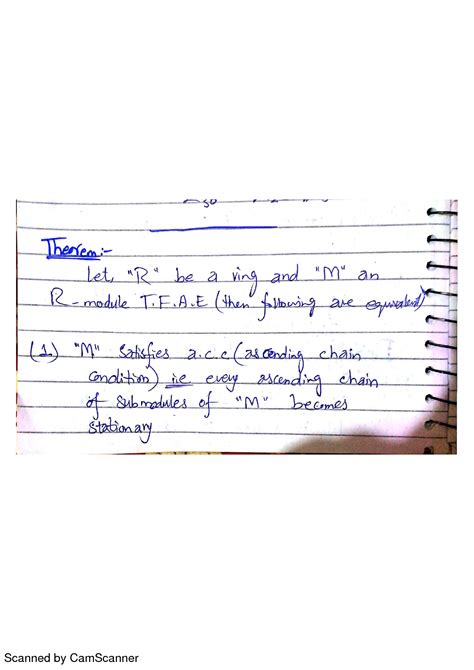 Theorem:-
Let, "R" be a ring and "M" an
R-module T.F.A.E (then following are equivalent)
(1) "M" Satisfies a.c.c (ascending chain
condition) i.e every ascending chain
of submodules of "M" becomes
stationary
Scanned by CamScanner